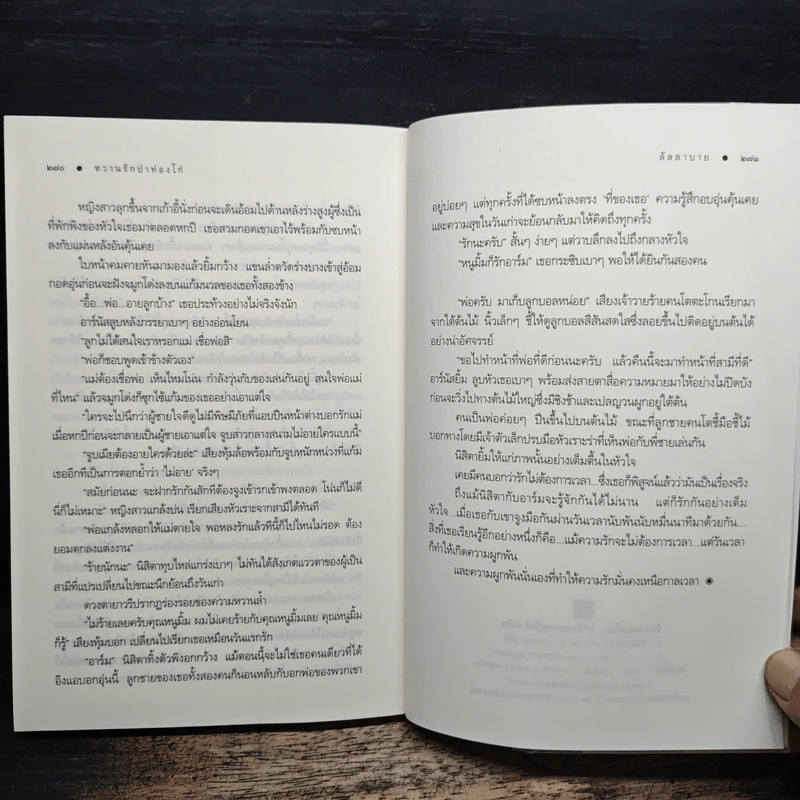 ๒๗๐ ● หวานรักป่าท่องโก๋
หญิงสาวลุกขึ้นจากเก้าอี้นั่งก่อนจะเดินอ้อมไปด้านหลังร่างสูงผู้ซึ่งเป็น
ที่พักพิงของหัวใจเธอมาตลอดหกปี เธอสวมกอดเขาเอาไว้พร้อมกับซบหน้า
ลงกับแผ่นหลังอันคุ้นเคย
ใบหน้าคมคายหันมามองแล้วยิ้มกว้าง แขนล่ำตวัดร่างบางเข้าสู่อ้อม
กอดอุ่นก่อนจะฝังจมูกโด่งลงบนแก้มนวลของเธอทั้งสองข้าง
“อื้อ...พ่อ...อายลูกบ้าง” เธอประท้วงอย่างไม่จริงจังนัก
อาร์นัสลูบหลังภรรยาเบาๆ อย่างอ่อนโยน
“ลูกไม่ได้สนใจเราหรอกแม่ เชื่อพ่อสิ”
“พ่อก็ชอบพูดเข้าข้างตัวเอง”
“แม่ต้องเชื่อพ่อ เห็นไหมโน่น กำลังวุ่นกับของเล่นกันอยู่ สนใจพ่อแม่
ที่ไหน” แล้วจมูกโด่งก็ซุกไซ้แก้มของเธออย่างเอาแต่ใจ
“ใครจะไปนึกว่าผู้ชายใจดีดูไม่มีพิษมีภัยที่แอบปีนหน้าต่างบอกรักแม่
เมื่อหกปีก่อนจะกลายเป็นผู้ชายเอาแต่ใจ จูบสาวกลางสนามไม่อายใครแบบนี้”
“จูบเมียต้องอายใครด้วยล่ะ” เสียงทุ้มล้อพร้อมกับจูบหนักหน่วงที่แก้ม
เธออีกทีเป็นการตอกย้ำว่า ‘ไม่อาย’ จริงๆ
“สมัยก่อนนะ จะฝากรักกันสักทีต้องจูงเข้ารกเข้าพงตลอด โน่นก็ไม่ดี
นี่ก็ไม่เหมาะ” หญิงสาวแกล้งบ่น เรียกเสียงหัวเราะจากสามีได้ทันที
“พ่อแกล้งหลอกให้แม่ตายใจ พอหลงรักแล้วทีนี้ก็ไปไหนไม่รอด ต้อง
ยอมตกลงแต่งงาน”
“ร้ายนักนะ” นิสิตาทุบไหล่แกร่งเบาๆ ไม่ทันได้สังเกตแววตาของผู้เป็น
สามีที่แปรเปลี่ยนไปขณะนึกย้อนถึงวันเก่า
ดวงตายาวรีปรากฏร่องรอยของความหวานล้ำ
“ไม่ร้ายเลยครับคุณหนูมิ้ม ผมไม่เคยร้ายกับคุณหนูมิ้มเลย คุณหนูมิ้ม
ก็รู้” เสียงทุ้มบอก เปลี่ยนไปเรียกเธอเหมือนวันแรกรัก
“อาร์ม” นิสิตาทิ้งตัวพิงอกกว้าง แม้ตอนนี้จะไม่ใช่เธอคนเดียวที่ได้
อิงแอบอกอุ่นนี้ ลูกชายของเธอทั้งสองคนก็นอนหลับกับอกพ่อของพวกเขา
ลัลลาบาย ● ๒๗๑
อยู่บ่อยๆ แต่ทุกครั้งที่ได้ซบหน้าลงตรง ‘ที่ของเธอ’ ความรู้สึกอบอุ่นคุ้นเคย
และความสุขในวันเก่าจะย้อนกลับมาให้คิดถึงทุกครั้ง
“รักนะครับ” สั้นๆ ง่ายๆ แต่วาบลึกลงไปถึงกลางหัวใจ
“หนูมิ้มก็รักอาร์ม” เธอกระซิบเบาๆ พอให้ได้ยินกันสองคน
“พ่อครับ มาเก็บลูกบอลหน่อย” เสียงเจ้าวายร้ายคนโตตะโกนเรียกมา
จากใต้ต้นไม้ นิ้วเล็กๆ ชี้ให้ดูลูกบอลสีสันสดใสซึ่งลอยขึ้นไปติดอยู่บนต้นได้
อย่างน่าอัศจรรย์
“ขอไปทำหน้าที่พ่อที่ดีก่อนนะครับ แล้วคืนนี้จะมาทำหน้าที่สามีที่ดี”
อาร์นัสยิ้ม ลูบหัวเธอเบาๆ พร้อมส่งสายตาสื่อความหมายมาให้อย่างไม่ปิดบัง
ก่อนจะวิ่งไปทางต้นไม้ใหญ่ซึ่งมีชิงช้าและเปลญวนผูกอยู่ใต้ต้น
คนเป็นพ่อค่อยๆ ปีนขึ้นไปบนต้นไม้ ขณะที่ลูกชายคนโตชี้มือชี้ไม้
บอกทางโดยมีเจ้าตัวเล็กปรบมือหัวเราะร่าที่เห็นพ่อกับพี่ชายเล่นกัน
นิสิตายิ้มให้แก่ภาพนั้นอย่างเต็มตื้นในหัวใจ
เคยมีคนบอกว่ารักไม่ต้องการเวลา...ซึ่งเธอก็พิสูจน์แล้วว่ามันเป็นเรื่องจริง
ถึงแม้นิสิตากับอาร์มจะรู้จักกันได้ไม่นาน แต่ก็รักกันอย่างเต็ม
หัวใจ...เมื่อเธอกับเขาจูงมือกันผ่านวันเวลานับพันนับหมื่นนาทีมาด้วยกัน...
สิ่งที่เธอเรียนรู้อีกอย่างหนึ่งก็คือ...แม้ความรักจะไม่ต้องการเวลา...แต่วันเวลา
ก็ทำให้เกิดความผูกพัน
และความผูกพันนั่นเองที่ทำให้ความรักมั่นคงเหนือกาลเวลา ◉